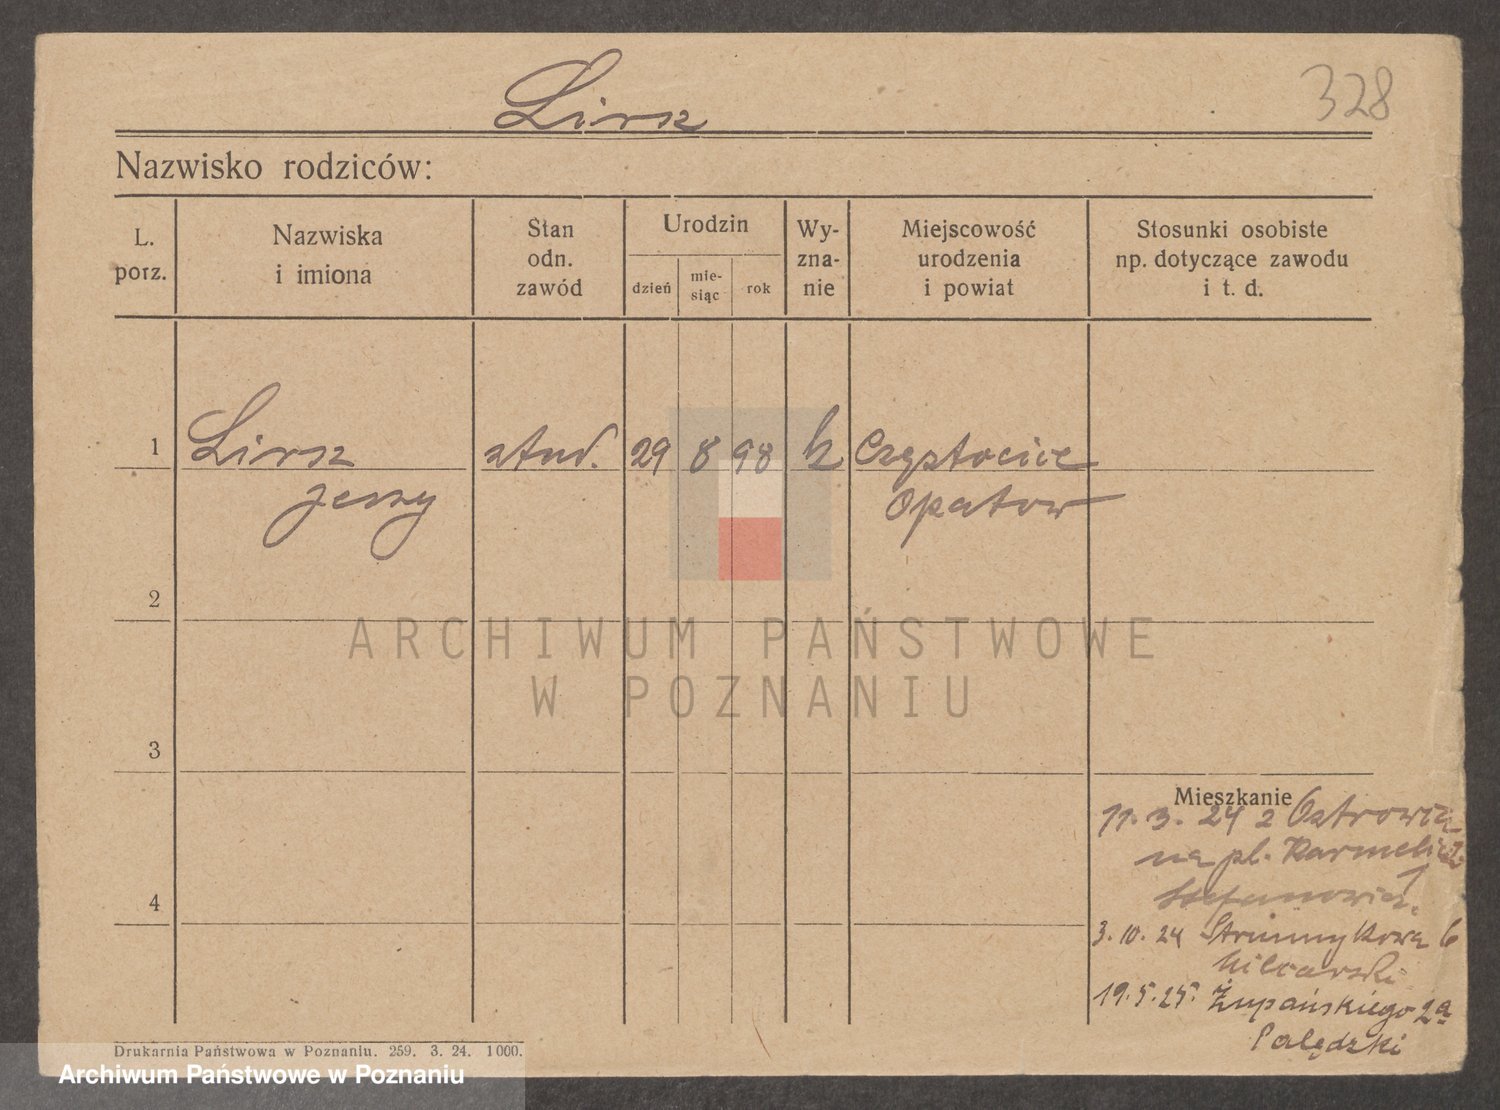 Lirsz
328
Nazwisko rodziców:
L. porz.
Nazwiska i imiona
Stan odn. zawód
Urodzin
dzień
mie-siąc
rok
Wy-zna-nie
Miejscowość urodzenia i powiat
Stosunki osobiste np. dotyczące zawodu i t. d.
1 Lirsz stud. 29 8 98 k Częstocice
Jerzy Opatow
2
ARCHIWUM PAŃSTWOWE
W POZNANIU
3
Mieszkanie
11. 3. 24 z Ostrowia
na pl. Karmelicki
4
3. 10. 24 Strumykowa 6
19. 5. 25. Żupańskiego 2a
Palędzki
Drukarnia Państwowa w Poznaniu. 259. 3. 24. 1000.
Archiwum Państwowe w Poznaniu